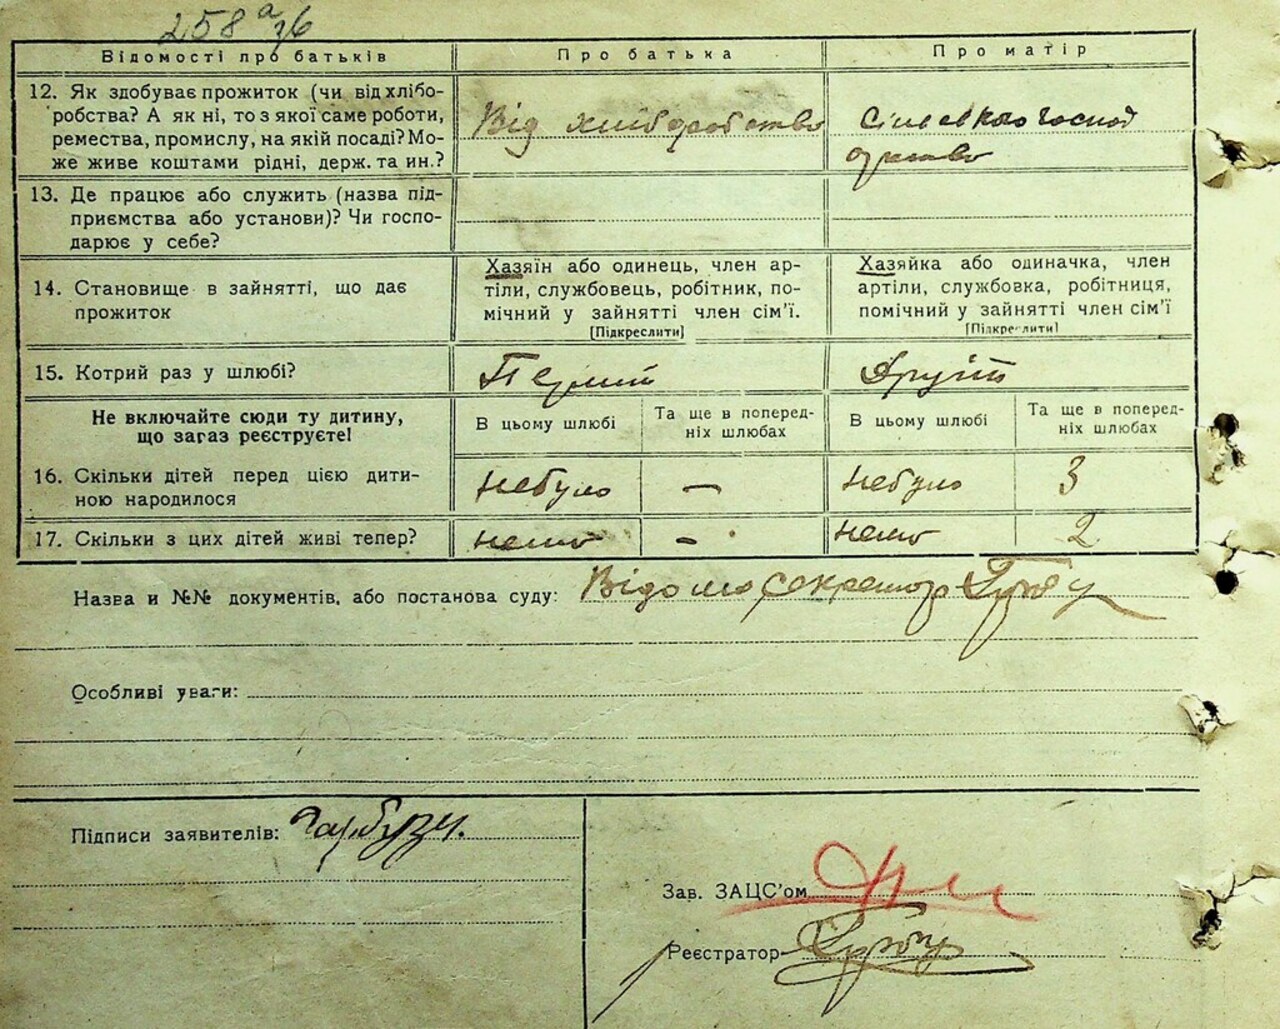 258 а/36
Відомості про батьків
Про батька
Про матір
12. Як здобуває прожиток (чи від хлібо-
робства? А як ні, то з якої саме роботи,
ремества, промислу, на якій посаді? Мо-
же живе коштами рідні, держ. та ин.?
Від хлібороб ство
Сільського господ
арство
13. Де працює або служить (назва під-
приємства або установи)? Чи госпо-
дарює у себе?
14. Становище в зайнятті, що дає
прожиток
Хазяїн або одинець, член ар-
тіли, службовець, робітник, по-
мічний у зайнятті член сім'ї.
[Підкреслити]
Хазяйка або одиначка, член
артіли, службовка, робітниця,
помічний у зайнятті член сім'ї
[Підкреслити]
15. Котрий раз у шлюбі?
Первий
Другий
Не включайте сюди ту дитину,
що загаз реєструєте!
В цьому шлюбі
Та ще в поперед-
ніх шлюбах
В цьому шлюбі
Та ще в поперед-
ніх шлюбах
16. Скільки дітей перед цією дити-
ною народилося
небуло
—
небуло
3
17. Скільки з цих дітей живі тепер?
немо
-
немо
2
Назва и №№ документів, або постанова суду: Відомо секретар
Особливі уваги:
Підписи заявителів: Гарбузи.
Зав. ЗАЦС'ом
Реєстратор